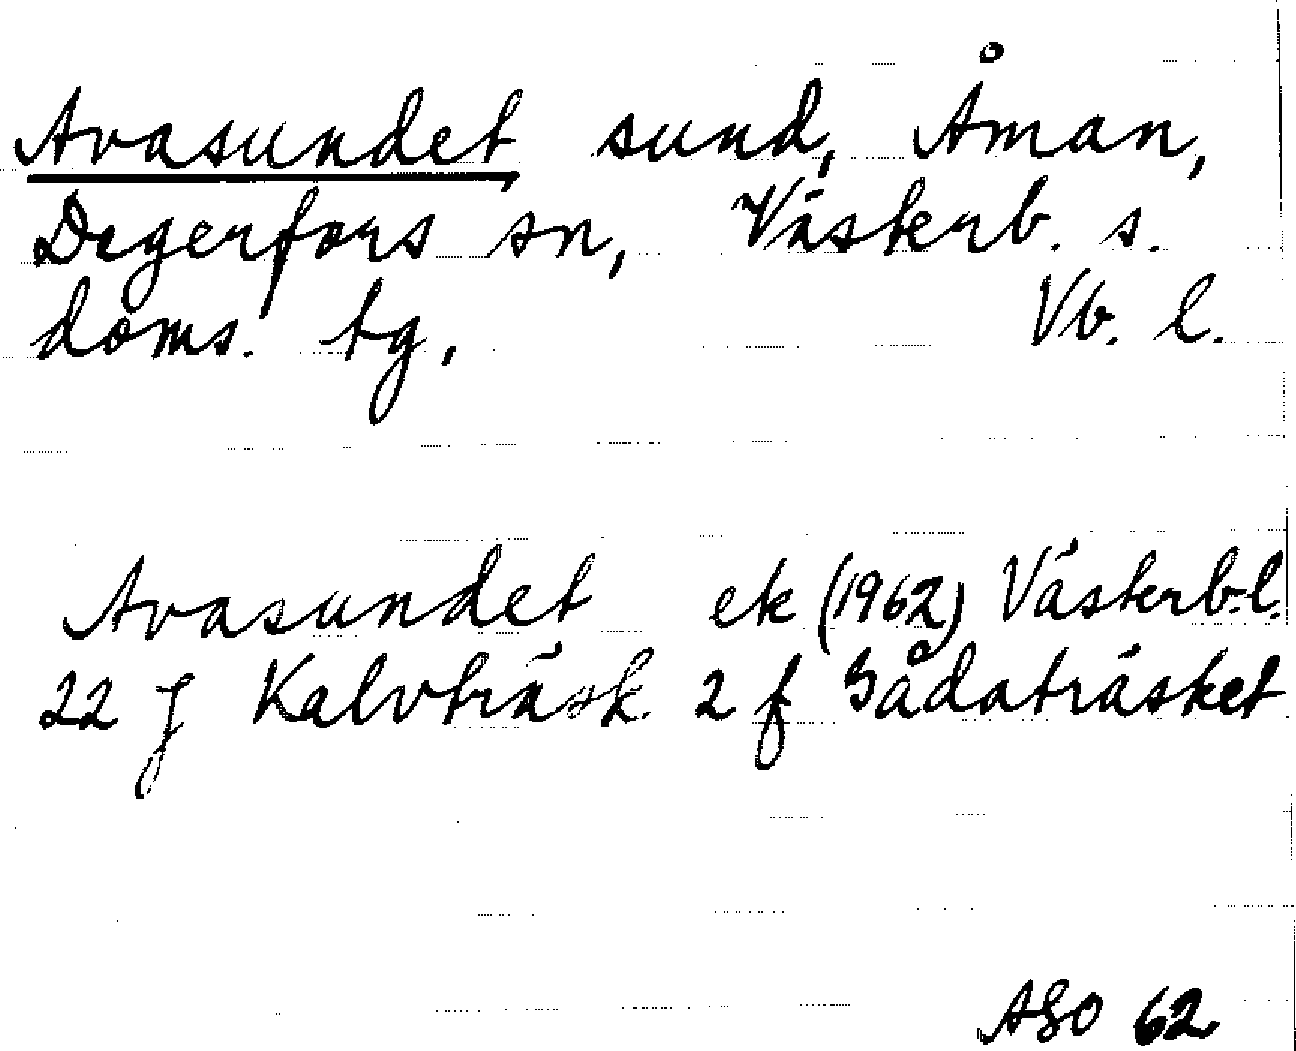 Avasundet, sund, Åman,
Degerfors sn, Västerb. s.
doms. tg, Vb. l.
Avasundet ek (1962) Västerb.l.
22 J Kalvträsk 2 f Sådaträsket
ASO 62